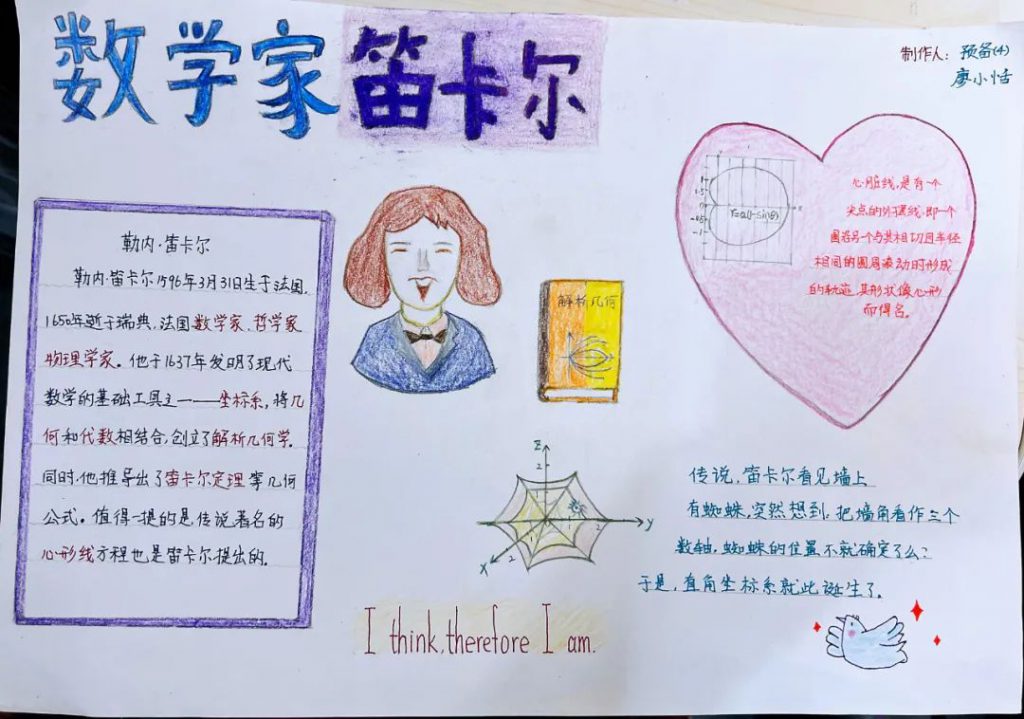 数学家笛卡尔
制作人：预备(4)
廖小恬
勒内·笛卡尔
勒内·笛卡尔1596年3月31日生于法国，
1650年逝于瑞典，法国数学家、哲学家
物理学家。他于1637年发明了现代
数学的基础工具之一——坐标系，将几
何和代数相结合，创立了解析几何学。
同时，他推导出了笛卡尔定理等几何
公式。值得一提的是，传说著名的
心形线方程也是笛卡尔提出的。
解析几何
r=a(1-sinθ)
心脏线，是有一个
尖点的外摆线，即一个
圆沿另一个与其相切且半径
相同的圆周滚动时形成
的轨迹，其形状像心形
而得名。
z
2
1
y
2
x
2
传说，笛卡尔看见墙上
有蜘蛛，突然想到，把墙角看作三个
数轴，蜘蛛的位置不就确定了么？
于是，直角坐标系就此诞生了。
I think, therefore I am.